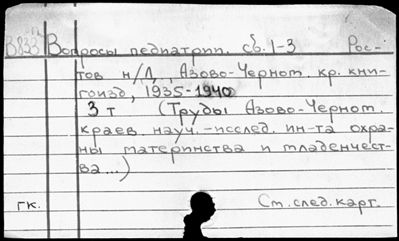 Вопросы педиатрии. сб. 1-3 Рос-
тов н/Д., Азово-Черном. кр. кни-
гоизд, 1935-1940
3 т (Труды Азово-Черном.
краев. науч.-исслед. ин-та охра-
ны материнства и младенчест-
ва...)
гк. См. след. карт.